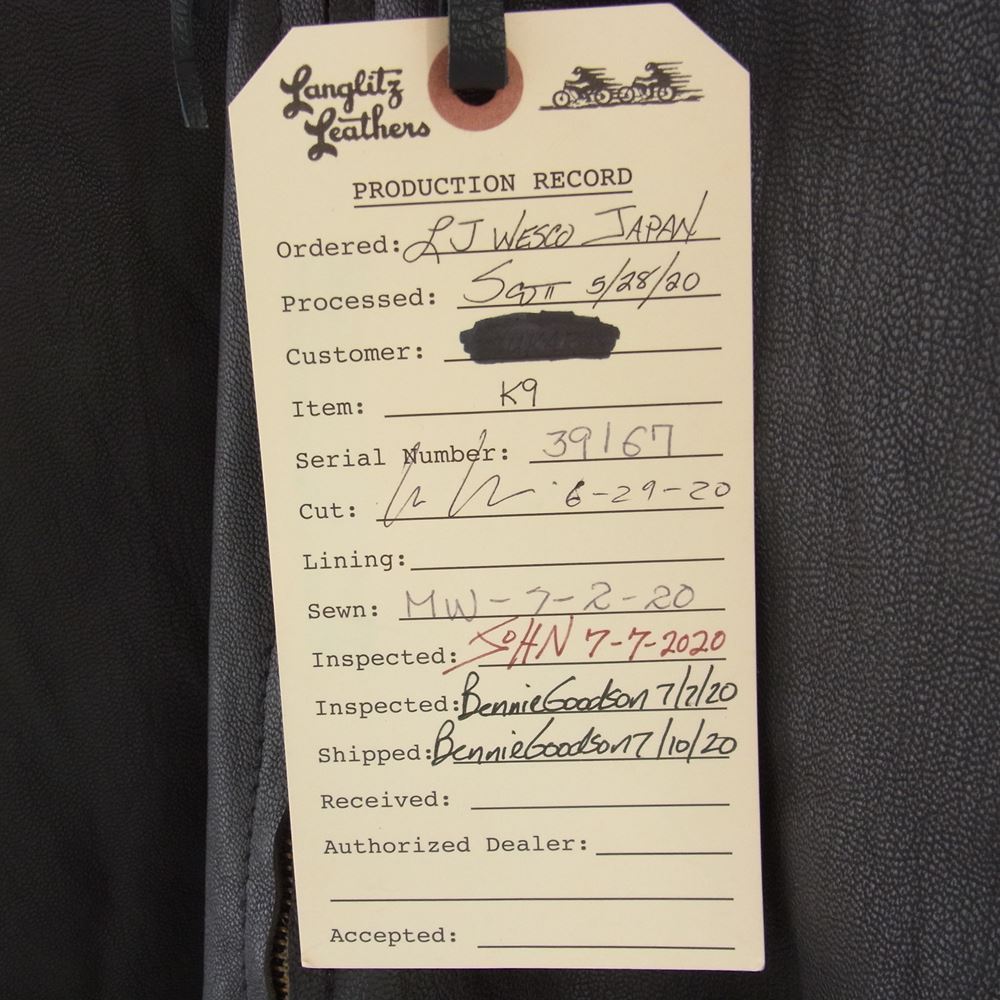 Langlitz
Leathers
PRODUCTION RECORD
Ordered: LJ WESCO JAPAN
Processed: Scott 5/28/20
Customer:
Item: K9
Serial Number: 39167
Cut: 6-29-20
Lining:
Sewn: MW-7-2-20
Inspected: JOHN 7-7-2020
Inspected: Bennie Goodson 7/7/20
Shipped: Bennie Goodson 7/10/20
Received:
Authorized Dealer:
Accepted: